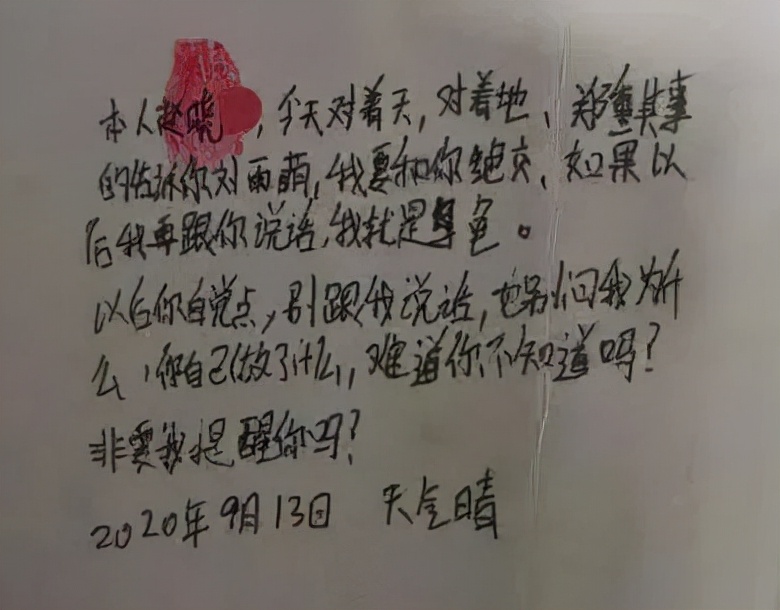 本人赵晓，今天对着天，对着地、郑重其事
的告诉你刘雨萌，我要和你绝交、如果以
后我再跟你说话，我就是
以后你自觉点，别跟我说话，也别问我为什
么，你自己做了什么，难道你不知道吗？
非要我提醒你吗？
2020年9月13日 天气晴